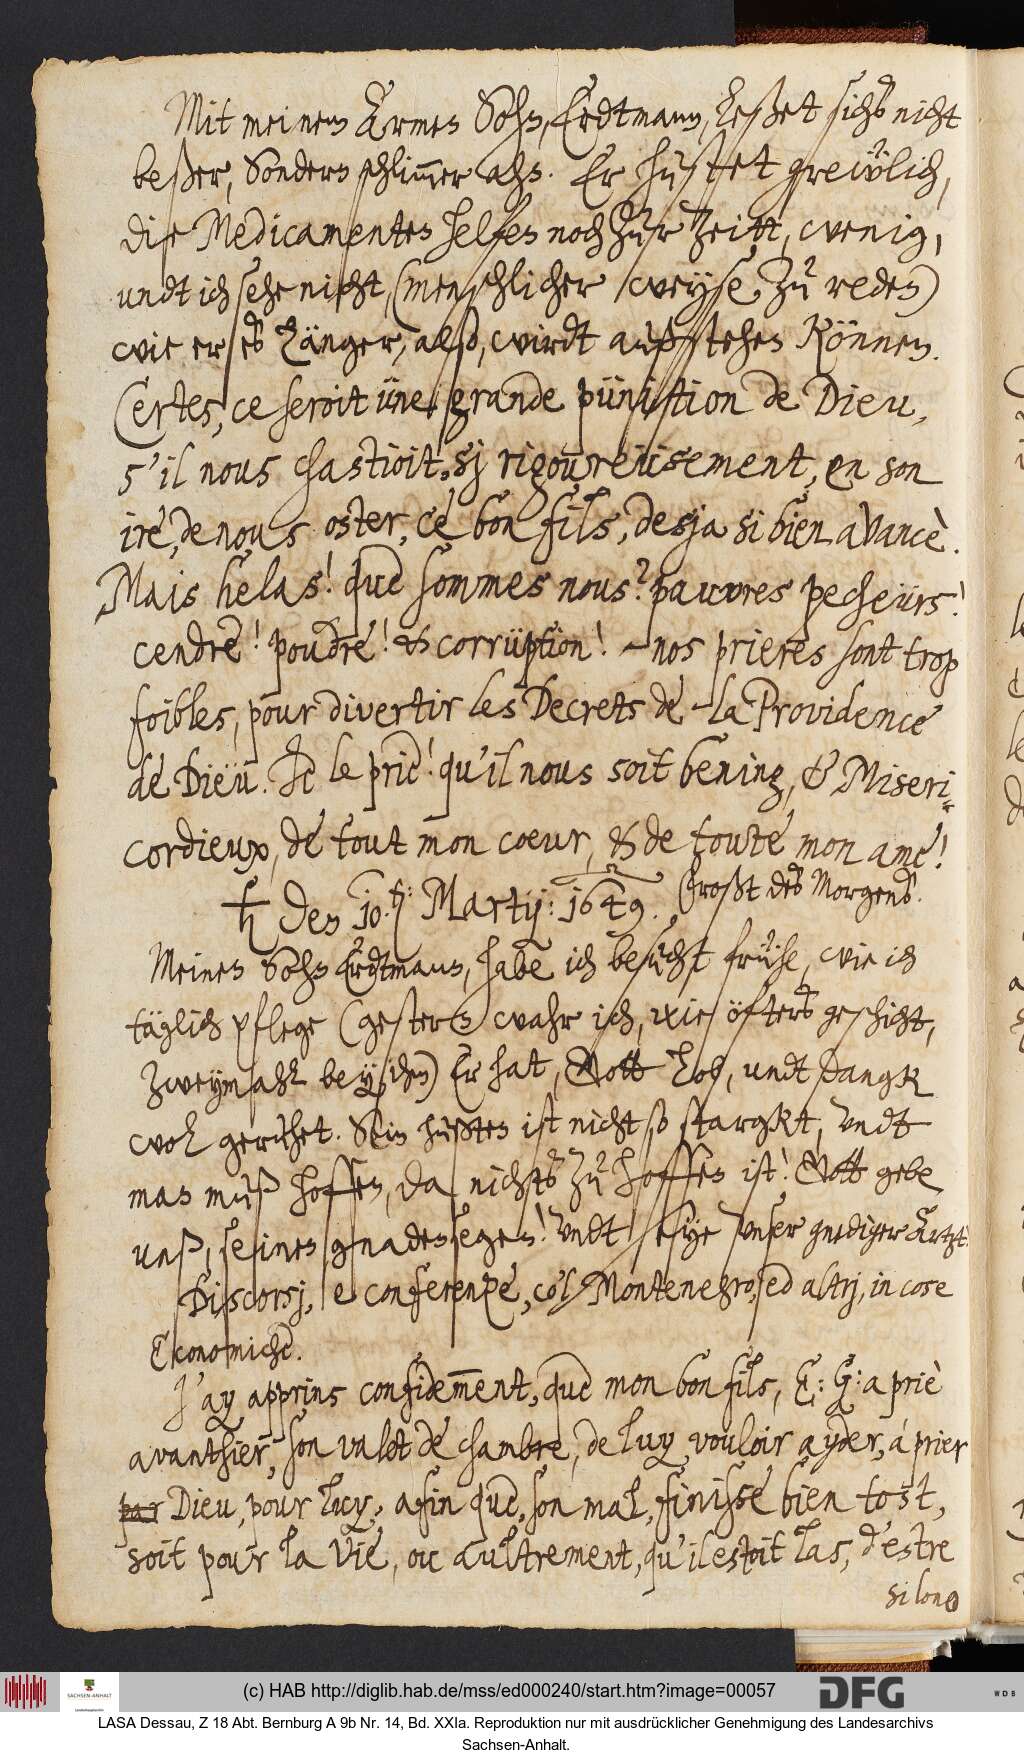 Mit meinem Armen Sohn, Erdtmann, leßet sichs nicht
beßer, Sondern schlim̅er ahn. Er hustet grewlich,
die Medicamenten helfen noch zur Zeitt, wenig,
undt ich sehe nicht, (menschlicher weyse, zu reden)
wie er es länger, also, wirdt außstehen können.
Certes, ce seroit üne grande pünition de Dieu,
s'il nous chastioit, sj rigoureüsement, en son
ire, de nous oster, ce bon fils, desja si bien avancè.
Mais helas! que sommes nous? pauvres pecheürs!
cendre! poudre! & corrüption! nos prieres sont trop
foibles, pour divertir les Decrets de la Providence
de Dieu. Je le prie! qu'il nous soit bening, & Miseri-
cordieux, de tout mon coeur, & de toute mon ame!
♄ den 10. h: Martij: 1649. Frost des Morgens.
Meinen Sohn Erdtmann, habe ich besucht frühe, wie ich
täglich pflege (gestern wahr ich, wie öfters geschicht,
zweymahl bey ihm) Er hat, Gott lob, undt dangk
wol geruhet. Sein husten ist nicht so stargkt, undt
man muß hoffen, da nichts zu hoffen ist! Gott gebe
unß, seinen gnadensegen! undt seye unser gnediger Artzt!
Discorsj, e conferenze, col Montenegro, ed altrj, in cose
Economiche.
J'ay apprins confidem̅ent, que mon bon fils, E: G: a priè
avanthier, son valet de chambre, de luy vouloir ayder, à prier
par Dieu, pour luy, afin que, son mal, finisse bien tost,
soit pour la vie, ou aultrement, qu'il estoit las, d'estre
si long
(c) HAB http://diglib.hab.de/mss/ed000240/start.htm?image=00057
SACHSEN-ANHALT
DFG
WDB
LASA Dessau, Z 18 Abt. Bernburg A 9b Nr. 14, Bd. XXIa. Reproduktion nur mit ausdrücklicher Genehmigung des Landesarchivs
Sachsen-Anhalt.